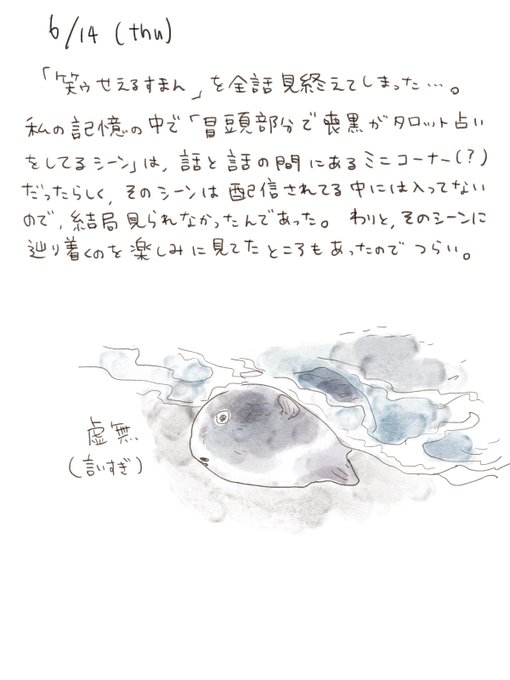 6/14 (thu)
「笑ゥせえるすまん」を全話見終えてしまった…。
私の記憶の中で「冒頭部分で喪黒がタロット占い
をしてるシーン」は、話と話の間にあるミニコーナー(?)
だったらしく、そのシーンは配信されてる中には入ってない
ので、結局見られなかったんであった。 わりと、そのシーンに
辿り着くのを楽しみに見てたところもあったのでつらい。
虚無
(言いすぎ)